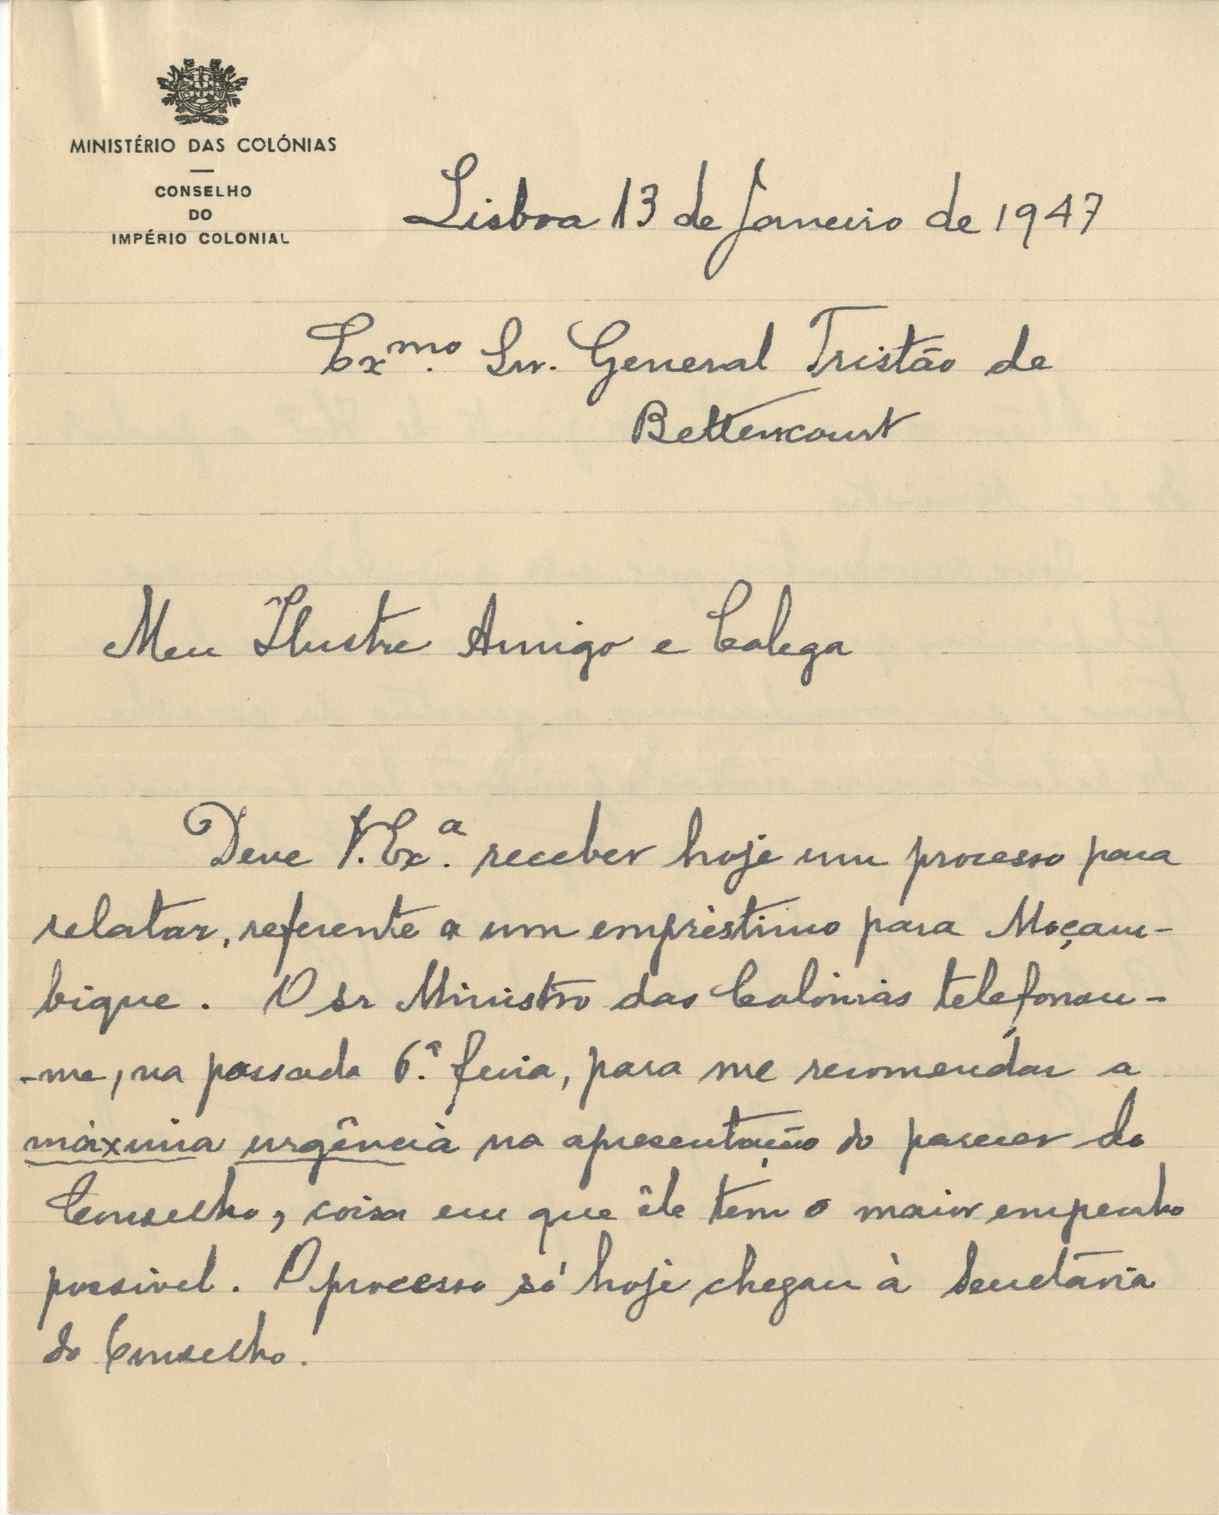 MINISTÉRIO DAS COLÓNIAS
CONSELHO
DO
IMPÉRIO COLONIAL
Lisboa 13 de Janeiro de 1947
Exmo. Snr. General Tristão de
Bettencourt
Meu Ilustre Amigo e Colega
Deve V. Exª. receber hoje um processo para
relatar, referente a um empréstimo para Moçam-
bique. O sr Ministro das Colónias telefonou-
-me, na passada 6ª. feira, para me recomendar a
máxima urgência na apresentação do parecer do
Conselho, coisa em que êle tem o maior empenho
possivel. O processo só hoje chegou à Secretaria
do Conselho.